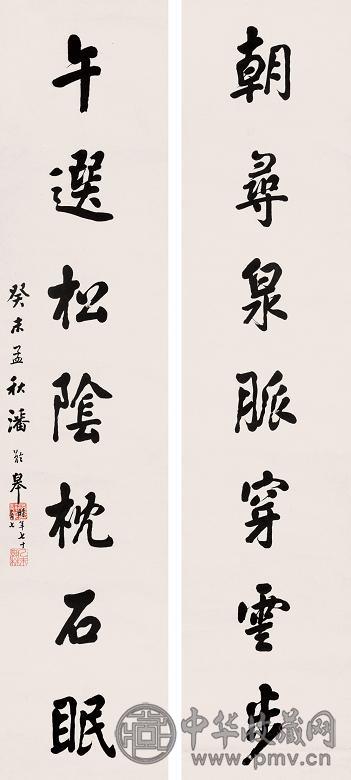 朝尋泉脈穿雲步
午選松陰枕石眠
癸未孟秋潘齡皋
時年七十七
中华收藏网
www.pmv.cn